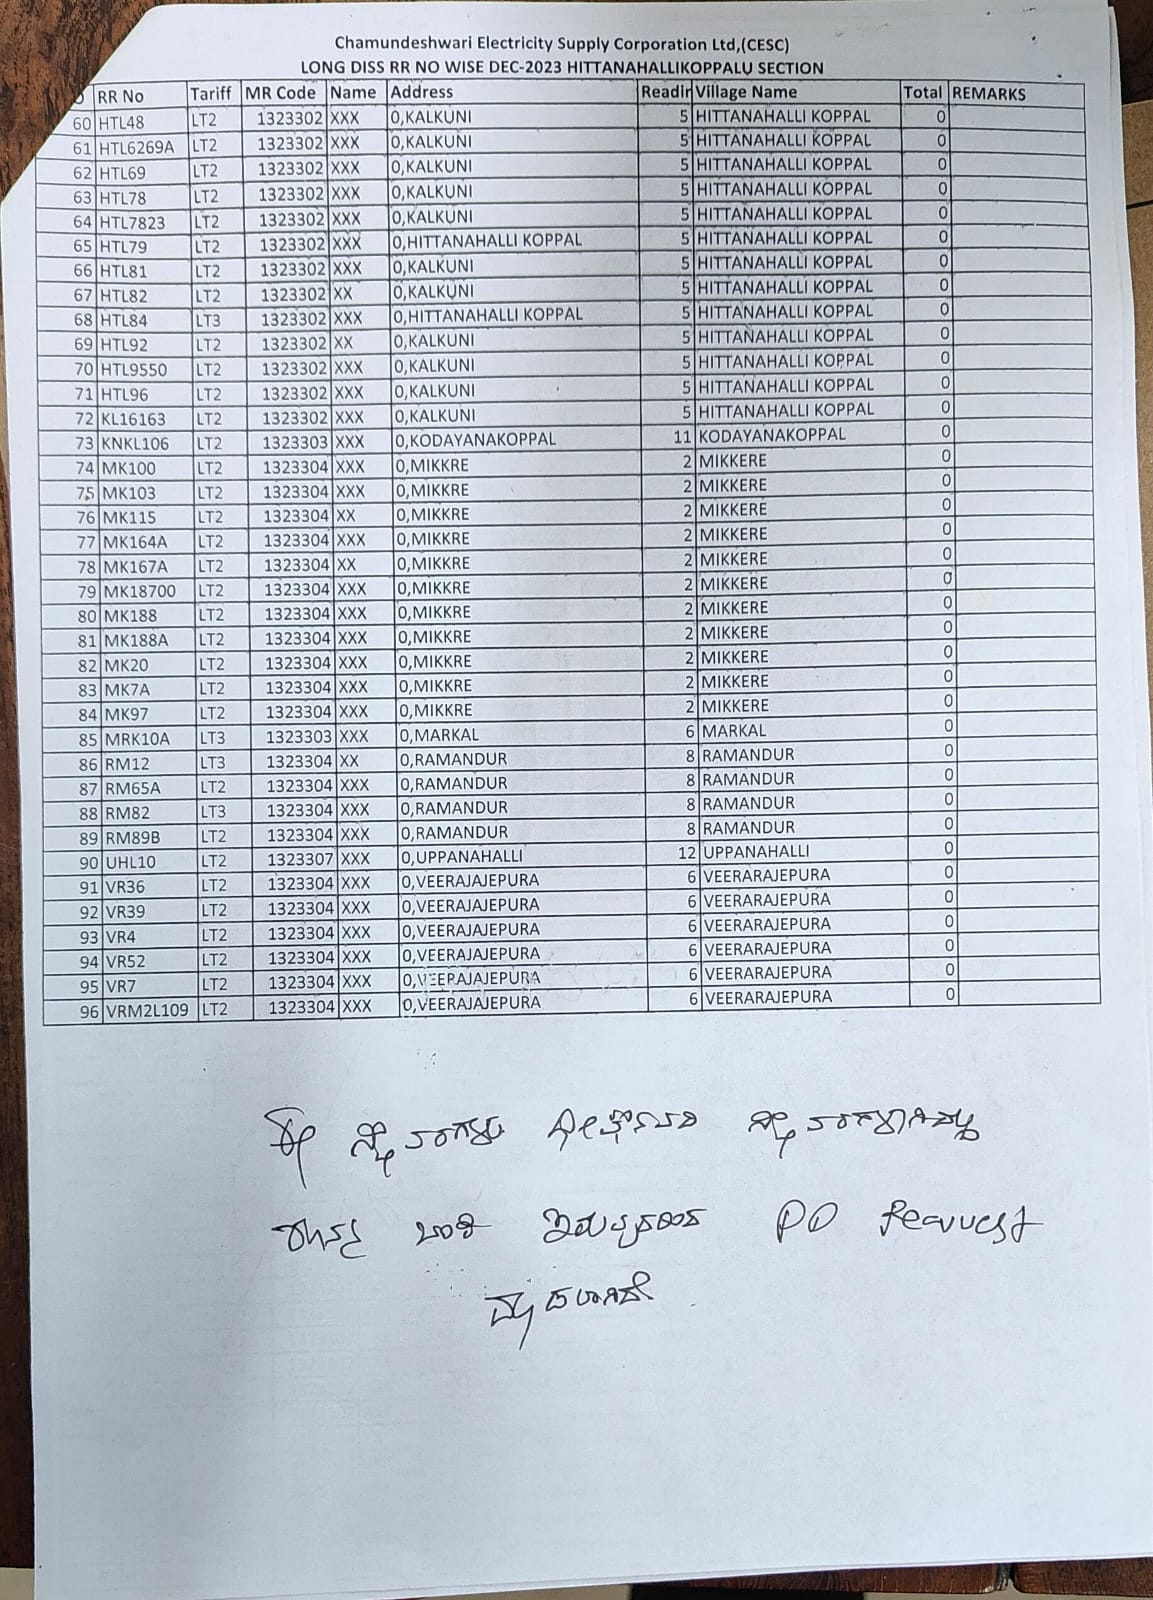 Chamundeshwari Electricity Supply Corporation Ltd,(CESC)
LONG DISS RR NO WISE DEC-2023 HITTANAHALLIKOPPALU SECTION
RR No Tariff MR Code Name Address Readin Village Name Total REMARKS
60 HTL48 LT2 1323302 XXX 0,KALKUNI 5 HITTANAHALLI KOPPAL 0
61 HTL6269A LT2 1323302 XXX 0,KALKUNI 5 HITTANAHALLI KOPPAL 0
62 HTL69 LT2 1323302 XXX 0,KALKUNI 5 HITTANAHALLI KOPPAL 0
63 HTL78 LT2 1323302 XXX 0,KALKUNI 5 HITTANAHALLI KOPPAL 0
64 HTL7823 LT2 1323302 XXX 0,KALKUNI 5 HITTANAHALLI KOPPAL 0
65 HTL79 LT2 1323302 XXX 0,HITTANAHALLI KOPPAL 5 HITTANAHALLI KOPPAL 0
66 HTL81 LT2 1323302 XXX 0,KALKUNI 5 HITTANAHALLI KOPPAL 0
67 HTL82 LT2 1323302 XX 0,KALKUNI 5 HITTANAHALLI KOPPAL 0
68 HTL84 LT3 1323302 XXX 0,HITTANAHALLI KOPPAL 5 HITTANAHALLI KOPPAL 0
69 HTL92 LT2 1323302 XX 0,KALKUNI 5 HITTANAHALLI KOPPAL 0
70 HTL9550 LT2 1323302 XXX 0,KALKUNI 5 HITTANAHALLI KOPPAL 0
71 HTL96 LT2 1323302 XXX 0,KALKUNI 5 HITTANAHALLI KOPPAL 0
72 KL16163 LT2 1323302 XXX 0,KALKUNI 5 HITTANAHALLI KOPPAL 0
73 KNKL106 LT2 1323303 XXX 0,KODAYANAKOPPAL 11 KODAYANAKOPPAL 0
74 MK100 LT2 1323304 XXX 0,MIKKRE 2 MIKKERE 0
75 MK103 LT2 1323304 XXX 0,MIKKRE 2 MIKKERE 0
76 MK115 LT2 1323304 XX 0,MIKKRE 2 MIKKERE 0
77 MK164A LT2 1323304 XXX 0,MIKKRE 2 MIKKERE 0
78 MK167A LT2 1323304 XX 0,MIKKRE 2 MIKKERE 0
79 MK18700 LT2 1323304 XXX 0,MIKKRE 2 MIKKERE 0
80 MK188 LT2 1323304 XXX 0,MIKKRE 2 MIKKERE 0
81 MK188A LT2 1323304 XXX 0,MIKKRE 2 MIKKERE 0
82 MK20 LT2 1323304 XXX 0,MIKKRE 2 MIKKERE 0
83 MK7A LT2 1323304 XXX 0,MIKKRE 2 MIKKERE 0
84 MK97 LT2 1323304 XXX 0,MIKKRE 2 MIKKERE 0
85 MRK10A LT3 1323303 XXX 0,MARKAL 6 MARKAL 0
86 RM12 LT3 1323304 XX 0,RAMANDUR 8 RAMANDUR 0
87 RM65A LT2 1323304 XXX 0,RAMANDUR 8 RAMANDUR 0
88 RM82 LT3 1323304 XXX 0,RAMANDUR 8 RAMANDUR 0
89 RM89B LT2 1323304 XXX 0,RAMANDUR 8 RAMANDUR 0
90 UHL10 LT2 1323307 XXX 0,UPPANAHALLI 12 UPPANAHALLI 0
91 VR36 LT2 1323304 XXX 0,VEERAJAJEPURA 6 VEERARAJEPURA 0
92 VR39 LT2 1323304 XXX 0,VEERAJAJEPURA 6 VEERARAJEPURA 0
93 VR4 LT2 1323304 XXX 0,VEERAJAJEPURA 6 VEERARAJEPURA 0
94 VR52 LT2 1323304 XXX 0,VEERAJAJEPURA 6 VEERARAJEPURA 0
95 VR7 LT2 1323304 XXX 0,VEERAJAJEPURA 6 VEERARAJEPURA 0
96 VRM2L109 LT2 1323304 XXX 0,VEERAJAJEPURA 6 VEERARAJEPURA 0
ಈ ಸ್ಥಾವರಗಳು
PD Request